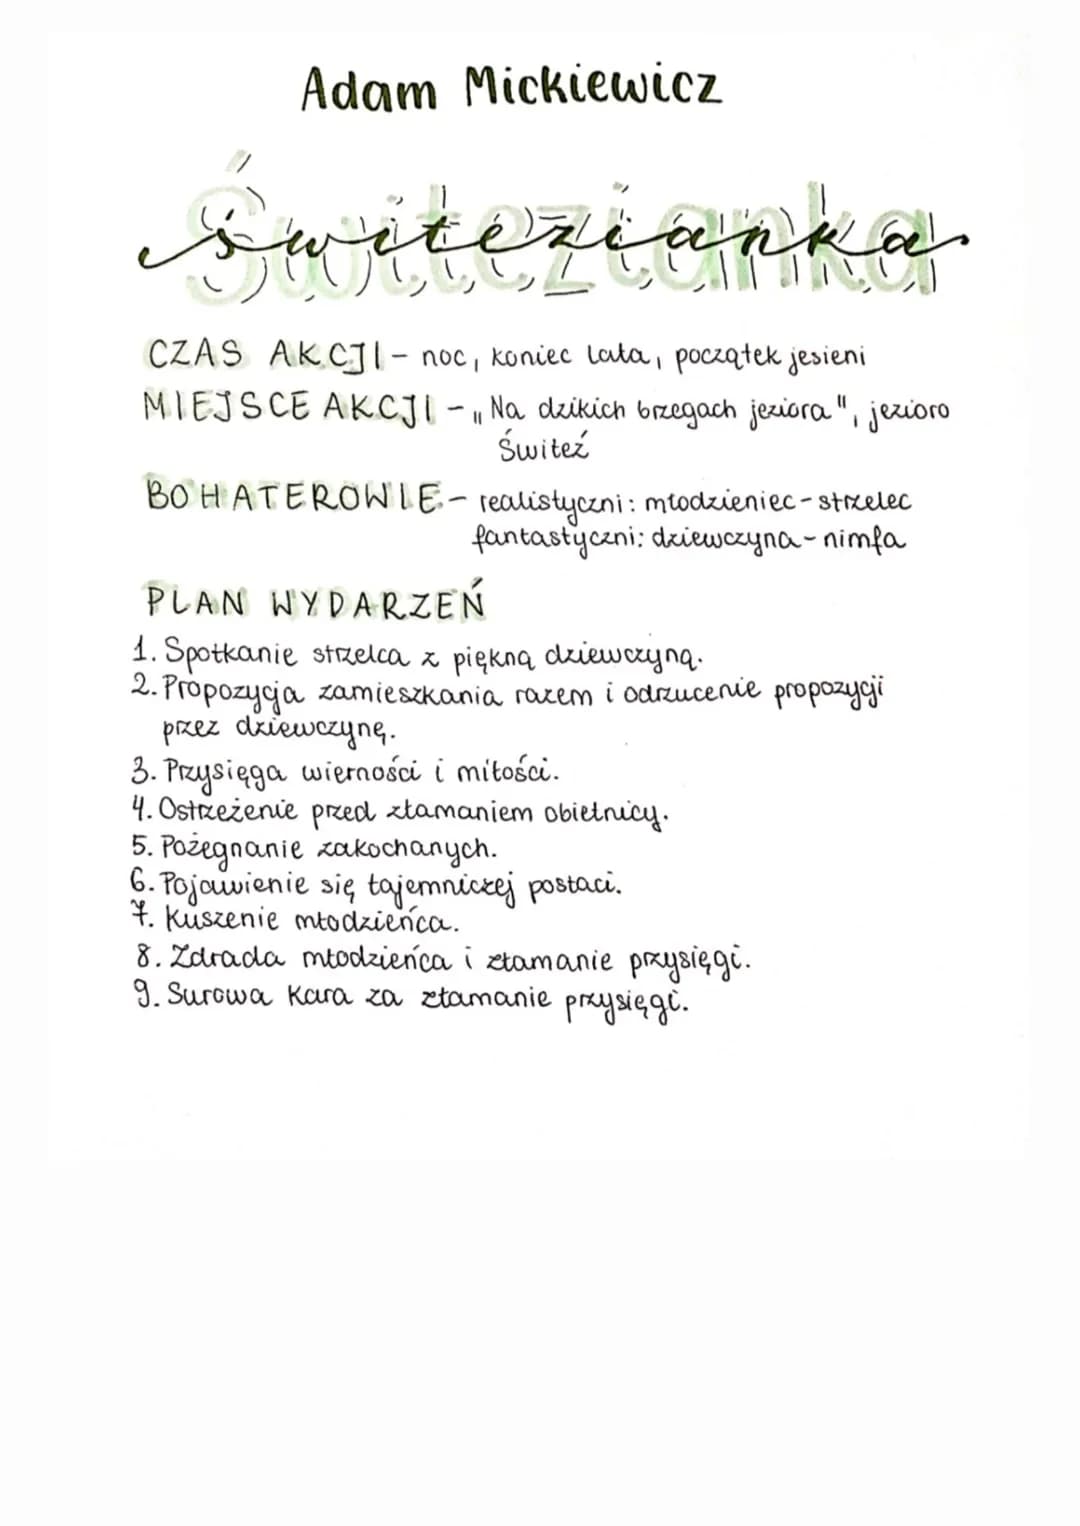 Adam Mickiewicz
Świtezianka
CZAS AKCJI - noc, koniec lata, początek jesieni
MIEJSCE AKCJI - „Na dzikich brzegach jeziora", jezioro
Świteź
BOHATEROWIE - realistyczni: młodzieniec - strzelec
fantastyczni: dziewczyna - nimfa
PLAN WYDARZEŃ
1. Spotkanie strzelca z piękną dziewczyną.
2. Propozycja zamieszkania razem i odrzucenie propozycji
przez dziewczynę.
3. Przysięga wierności i miłości.
4. Ostrzeżenie przed złamaniem obietnicy.
5. Pożegnanie zakochanych.
6. Pojawienie się tajemniczej postaci.
7. Kuszenie młodzieńca.
8. Zdrada młodzieńca i złamanie przysięgi.
9. Surowa kara za złamanie przysięgi.